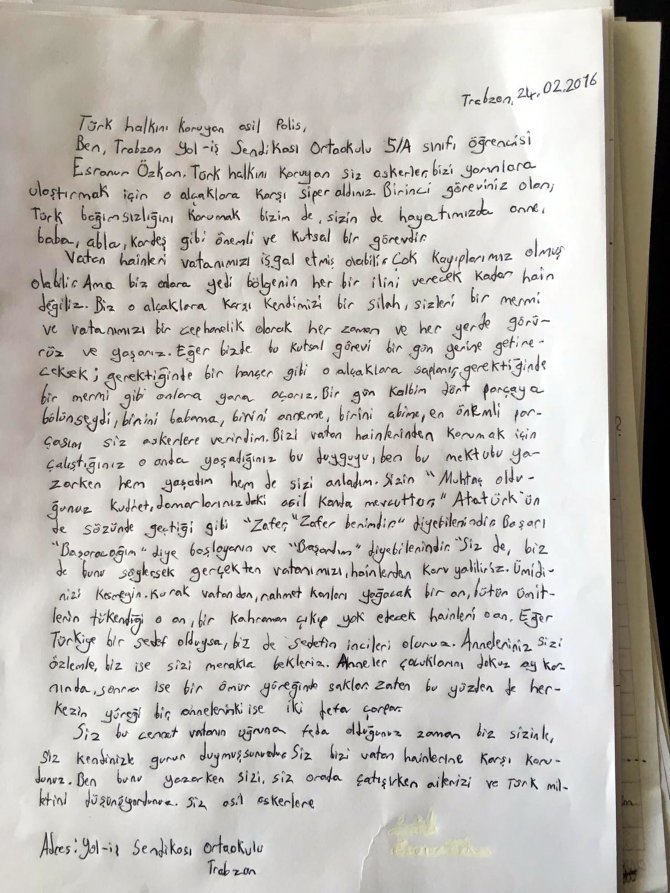 Trabzon, 24.02.2016
Türk halkını koruyan asil Polis,
Ben, Trabzon Yol-iş Sendikası Ortaokulu 5/A sınıfı öğrencisi
Esranur Özkan. Türk halkını koruyan siz askerler, bizi yarınlara
ulaştırmak için o alçaklara karşı siper aldınız. Birinci göreviniz olan,
Türk bağımsızlığını korumak bizim de, sizin de hayatımızda anne,
baba, abla, kardeş gibi önemli ve kutsal bir görevdir.
Vatan hainleri vatanımızı işgal etmiş olabilir. Çok kayıplarımız olmuş
olabilir. Ama biz onlara yedi bölgenin her bir ilini verecek kadar hain
değiliz. Biz o alçaklara karşı kendimizi bir silah, sizleri bir mermi
ve vatanımızı bir cephanelik olarak her zaman ve her yerde görü-
rüz ve yaşarız. Eğer bizde bu kutsal görevi bir gün yerine getire-
ceksek; gerektiğinde bir hançer gibi o alçaklara saplanış, gerektiğinde
bir mermi gibi onlara yara açarız. Bir gün kalbim dört parçaya
bölünseydi, birini babama, birini anneme, birini abime, en önemli par-
çasını siz askerlere verirdim. Bizi vatan hainlerinden korumak için
çalıştığınız o anda yaşadığınız bu duyguyu, ben bu mektubu ya-
zarken hem yaşadım hem de sizi anladım. Sizin "Muhtaç oldu-
ğunuz kudret, damarlarınızdaki asil kanda mevcuttur." Atatürk'ün
de sözünde geçtiği gibi "Zafer, "Zafer benimdir" diyebilenindir. Başarı
"Başaracağım" diye başlayanın ve "Başardım" diyebilenindir. "Siz de, biz
de bunu söylersek gerçekten vatanımızı, hainlerden koruyabiliriz. Ümidi-
nizi kesmeyin. Kurak vatandan, rahmet kanları yağacak bir an, bütün ümit-
lerin tükendiği o an, bir kahraman çıkıp yok edecek hainleri o an. Eğer
Türkiye bir sedef olduysa, biz de sedefin incileri oluruz. Anneleriniz sizi
özlemle, biz ise sizi merakla bekleriz. Anneler çocuklarını dokuz ay kar-
nında, sonra ise bir ömür yüreğinde saklar. Zaten bu yüzden de her-
kezin yüreği bir, annelerinki ise iki defa çarpar.
Siz bu cennet vatanın uğruna feda olduğunuz zaman biz sizinle,
siz kendinizle gurur duymuşsunuzdur. Siz bizi vatan hainlerine karşı koru-
dunuz. Ben bunu yazarken sizi, siz orada çatışırken ailenizi ve Türk mil-
letini düşünüyordunuz. Siz asil askerlere
Adres: Yol-iş Sendikası Ortaokulu
Trabzon